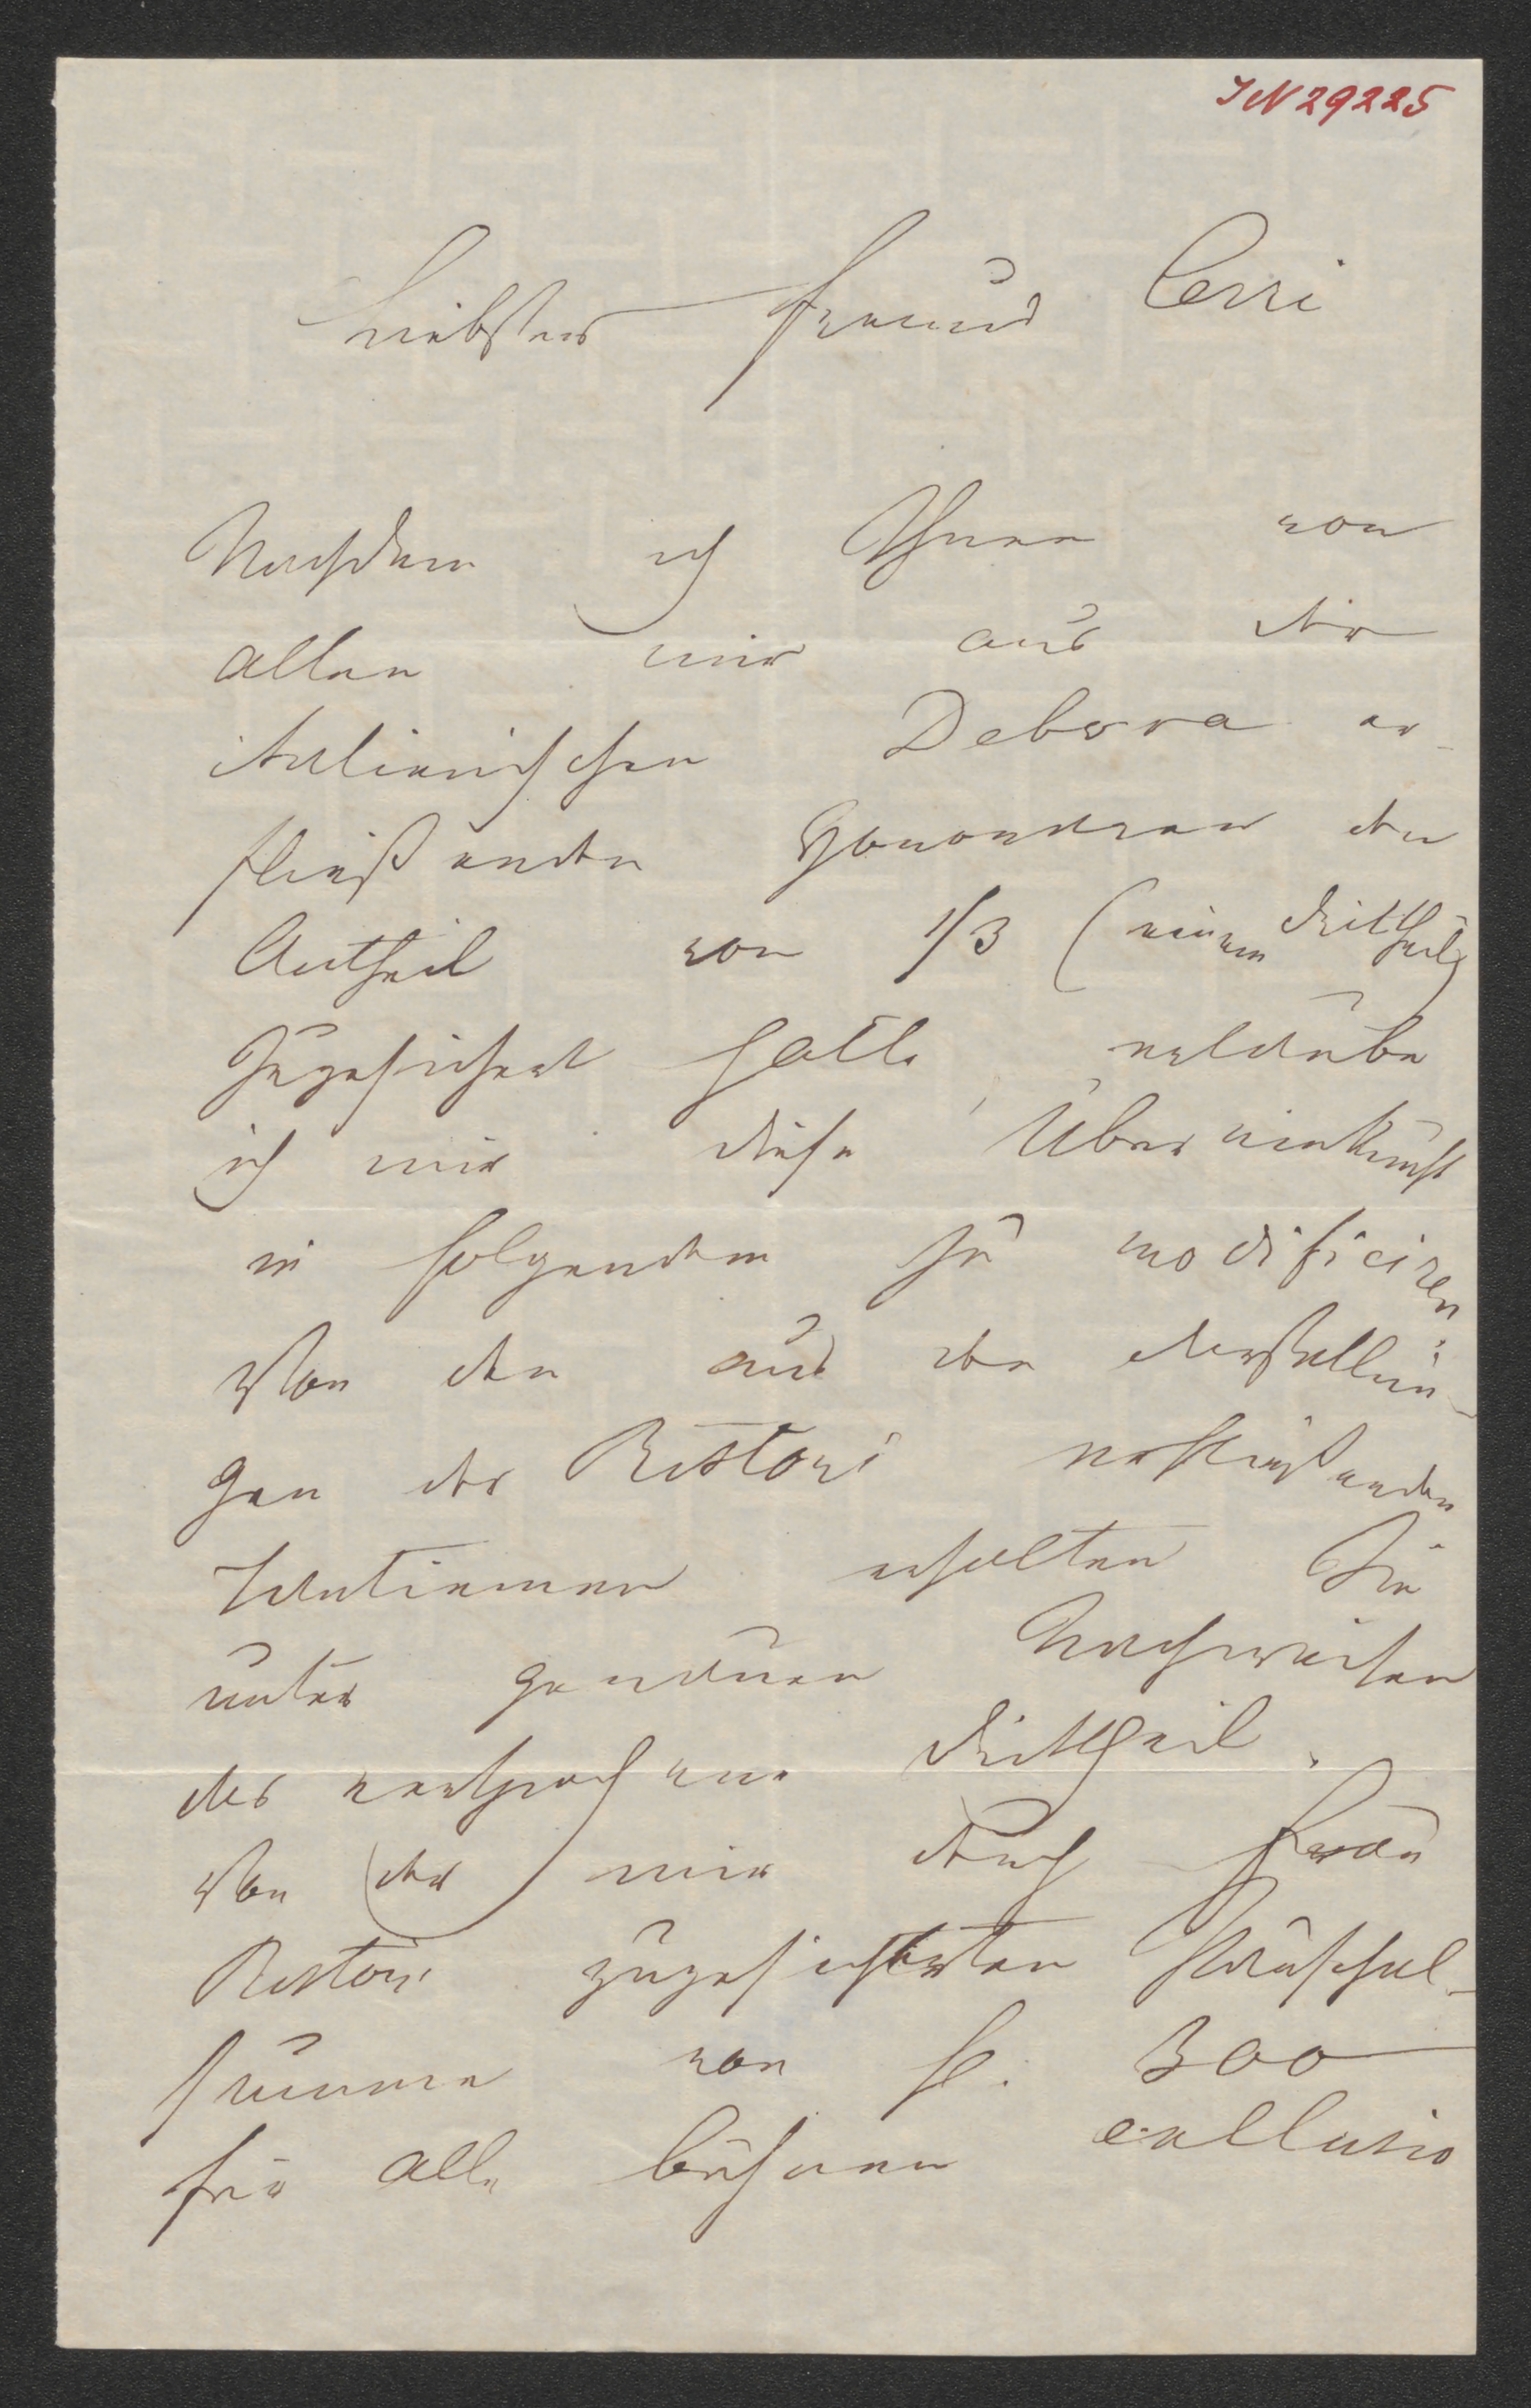 IN 29225
Liebster Freund Cerri
Nachdem ich Ihnen von
allen mir aus der
italienischen Debora er-
fließenden Honoraren den
Antheil von 1/3 (einem Drittheil)
zugesichert hatte, erlaube
ich mir diese Übereinkunft
in folgendem zu modificiren:
Von den aus den Darstellun-
gen der Ristori erfließenden
Tantiemen erhalten Sie
unter genauen Nachweisen
das versprochene Drittheil.
Von der mir durch Frau
Ristori zugesicherten Pauschal-
summe von fl. 300
für alle Bühnen